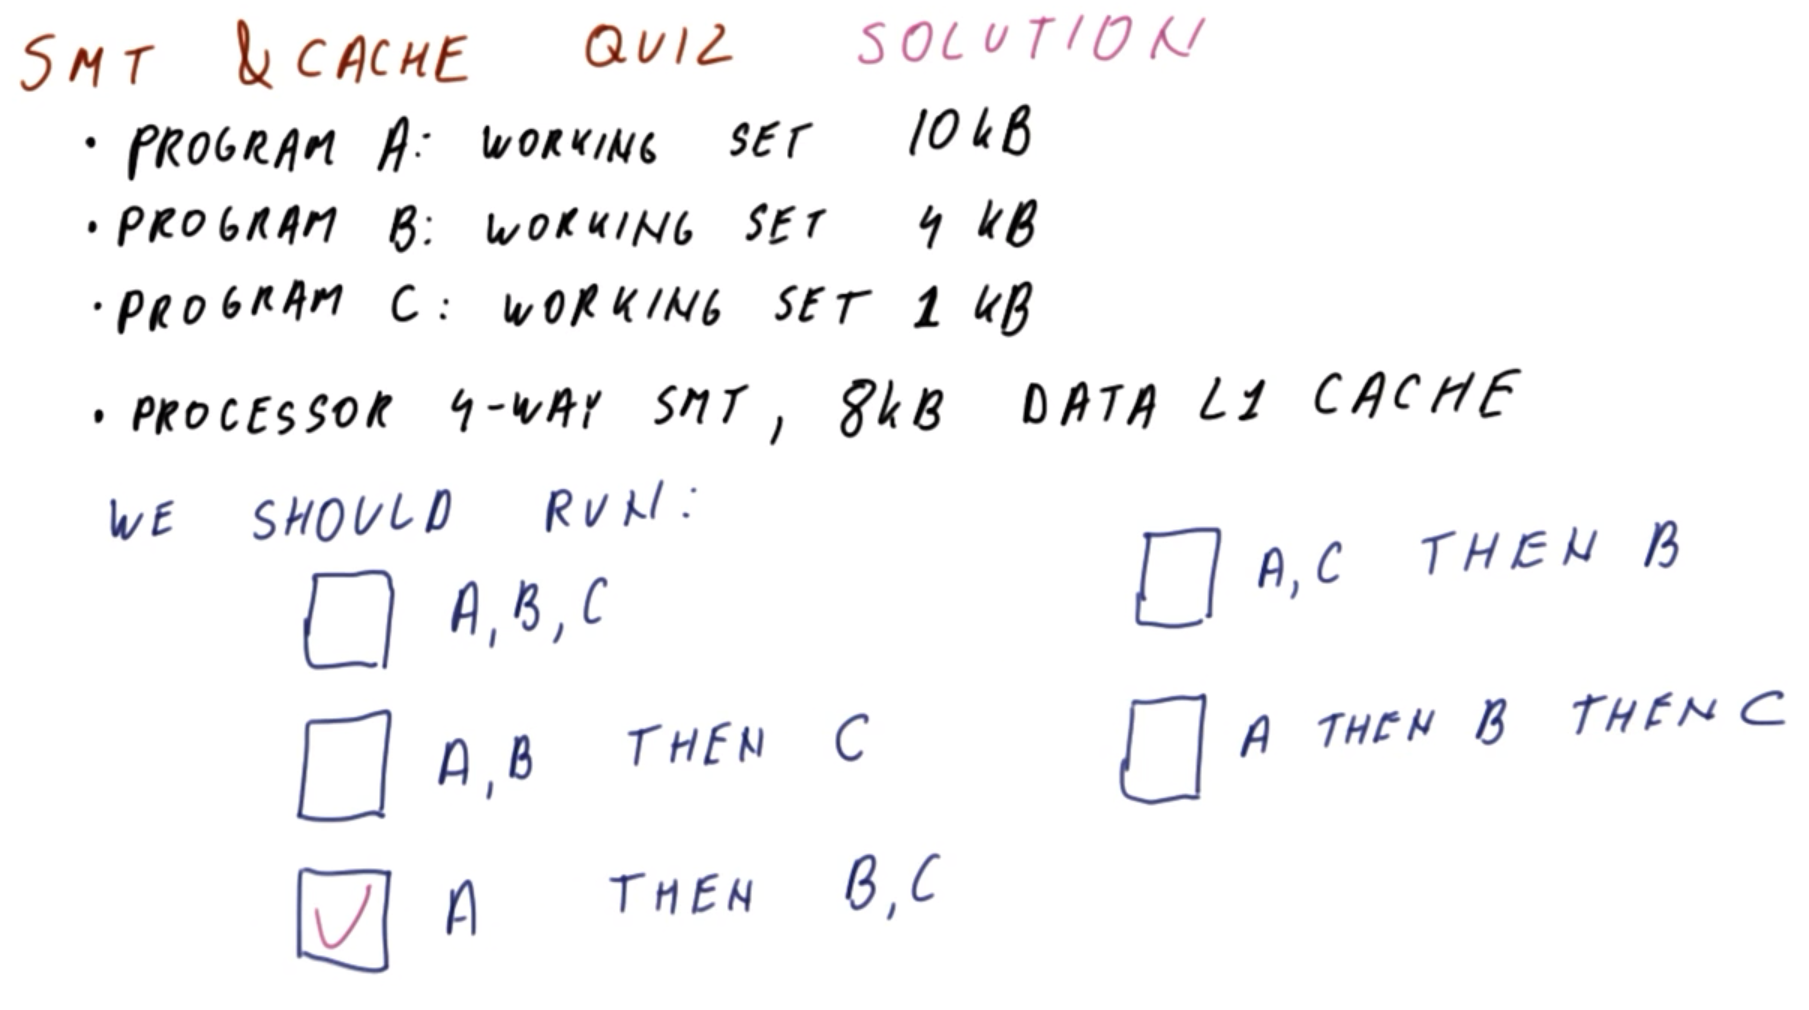 SMT & CACHE QUIZ SOLUTION
• PROGRAM A: WORKING SET 10 kB
• PROGRAM B: WORKING SET 4 kB
• PROGRAM C: WORKING SET 1 kB
• PROCESSOR 4-WAY SMT, 8kB DATA L1 CACHE
WE SHOULD RUN:
A, B, C
A, B THEN C
A THEN B, C
A, C THEN B
A THEN B THEN C